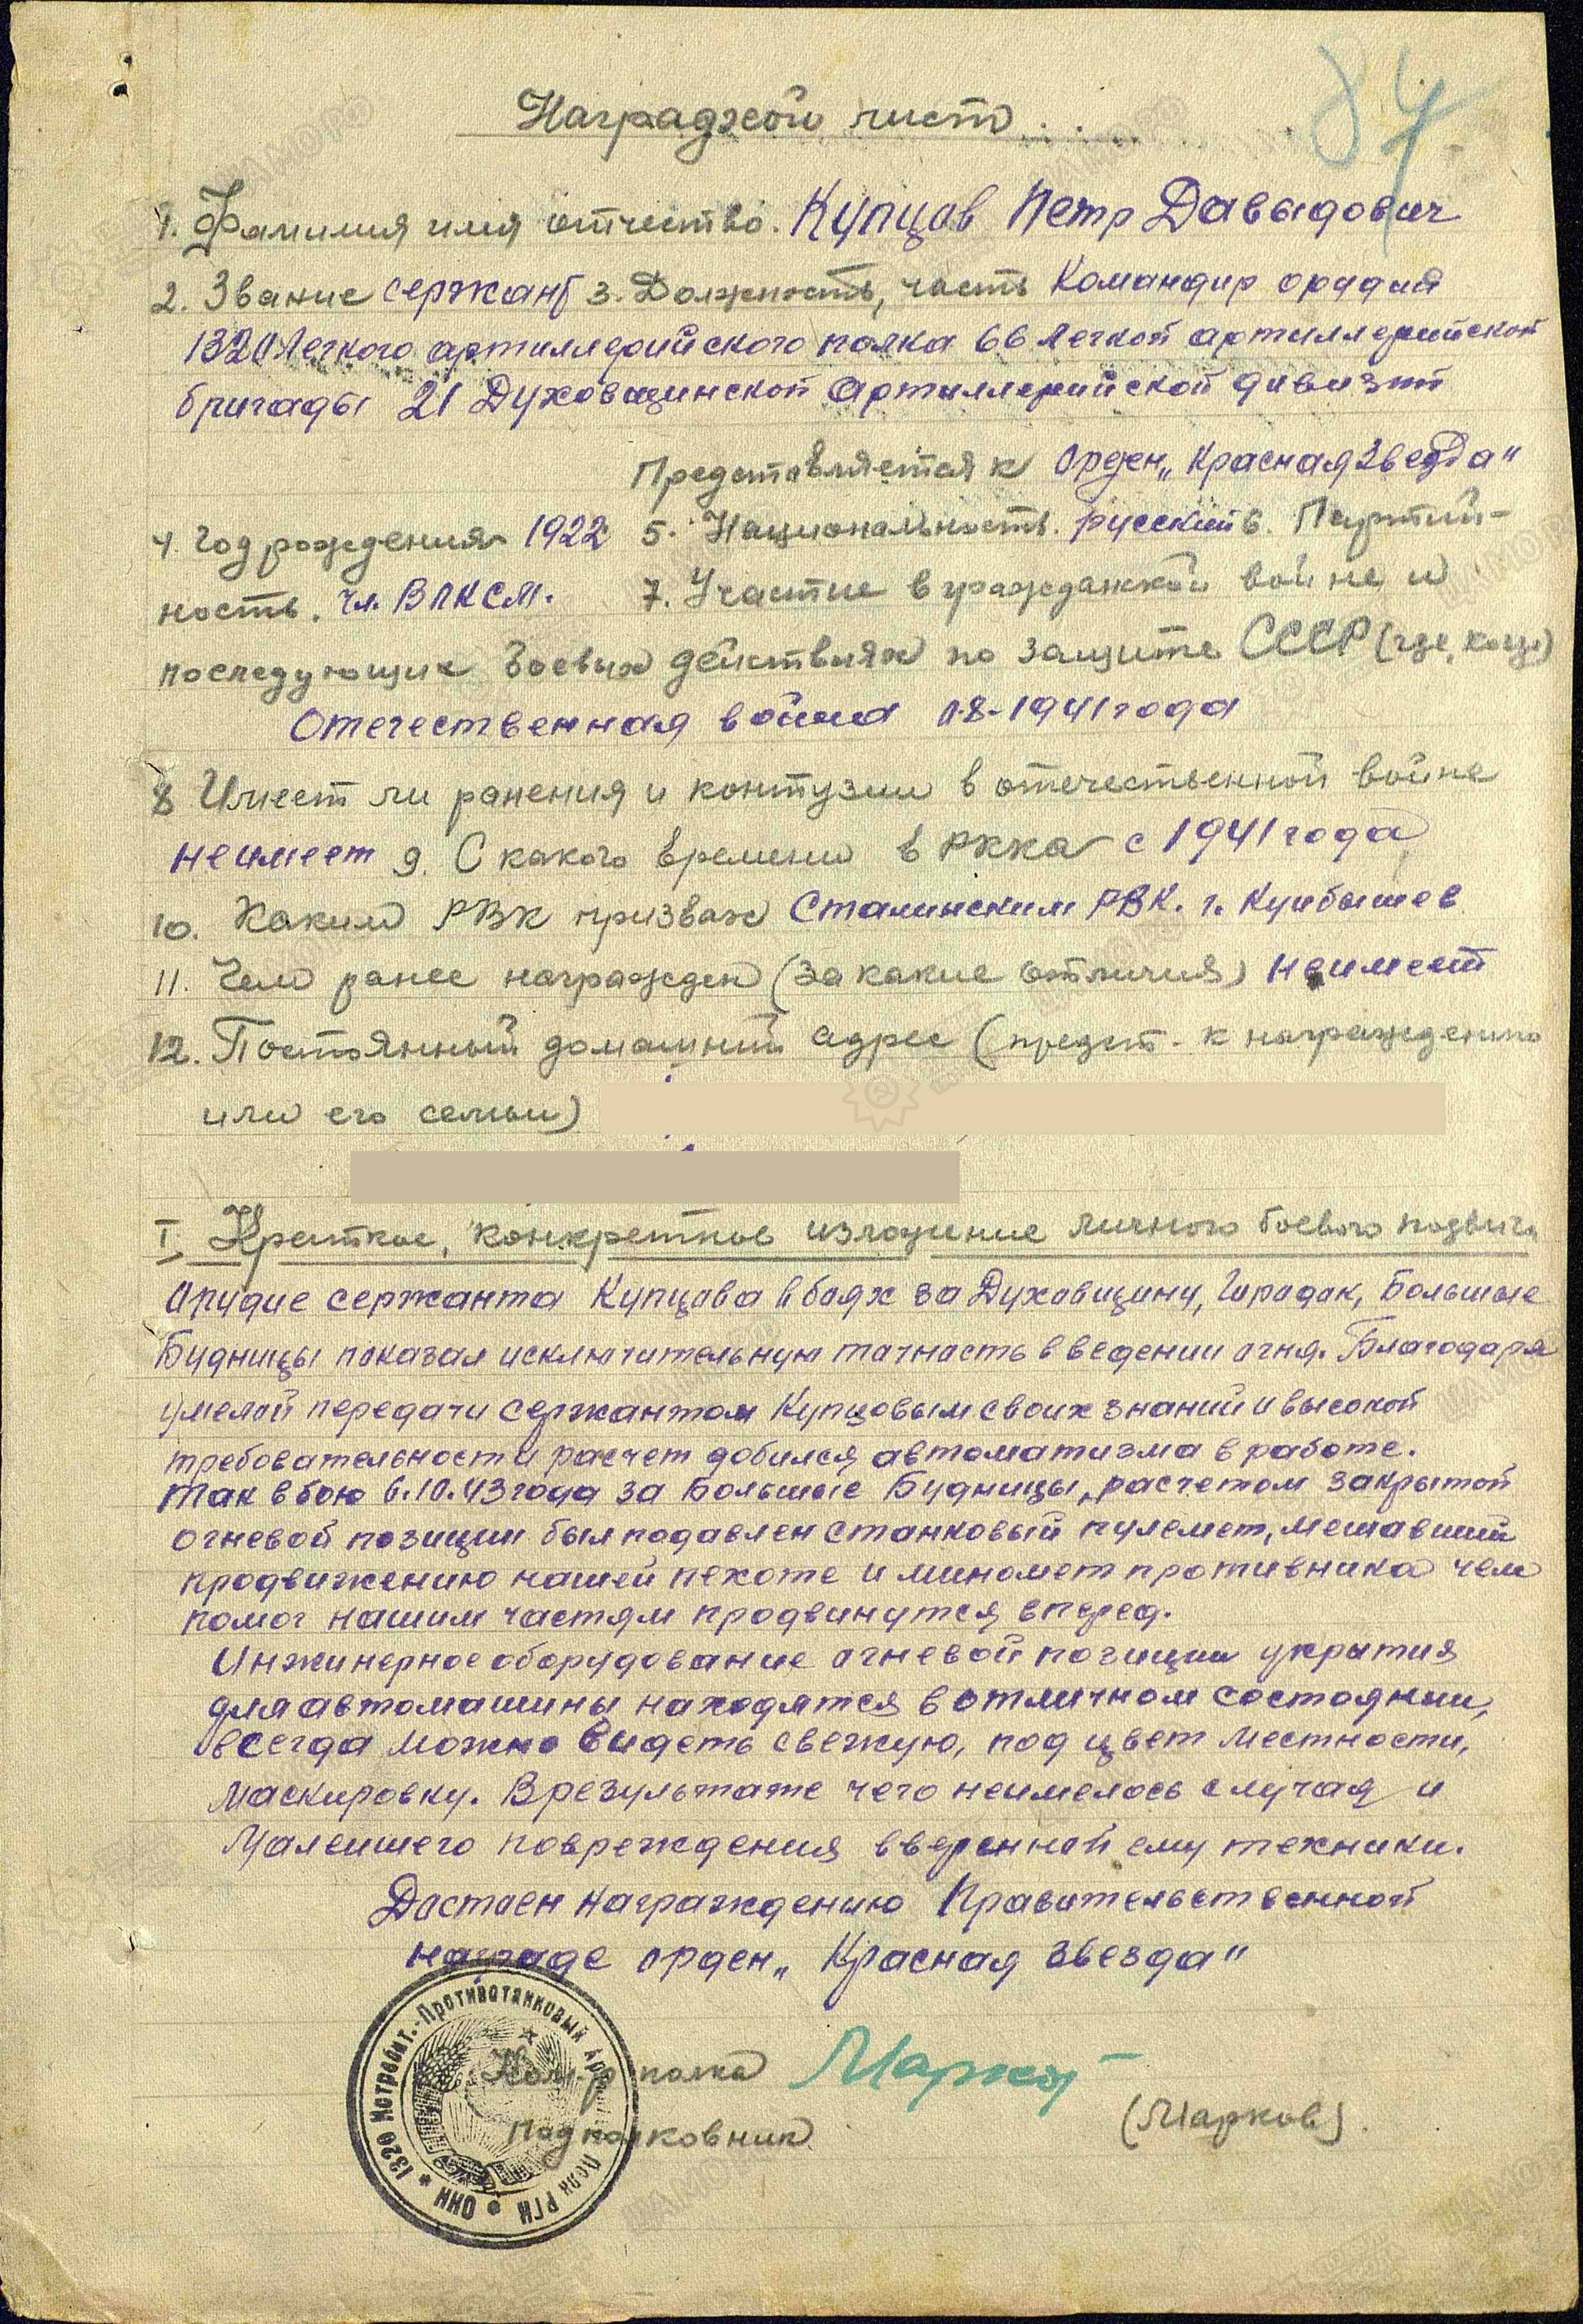 84
Наградной лист
1. Фамилия имя отчество. Купцов Петр Давыдович
2. Звание сержант 3. Должность, часть Командир орудия
1320 Легкого артиллерийского полка 66 легкой артиллерийской
бригады 21 Духовщинской Артиллерийской дивизии
Представляется к Орден „Красная Звезда"
4. Год рождения 1922 5. Национальность. русский 6. Партий-
ность. чл. ВЛКСМ. 7. Участие в гражданской войне и
последующих боевых действиях по защите СССР (где, когда)
Отечественная война с 8-1941 года
8 Имеет ли ранения и контузии в отечественной войне
неимеет 9. С какого времени в РККА с 1941 года
10. Каким РВК призван Сталинским РВК. г. Куйбышев
11. Чем ранее награжден (за какие отличия) неимеет
12. Постоянный домашний адрес (предст. к награждению
или его семьи)
I Краткое, конкретное изложение личного боевого подвига
Орудие сержанта Купцова в боях за Духовщину, Городок, Большие
Будницы показал исключительную точность в ведении огня. Благодаря
умелой передачи сержантом Купцовым своих знаний и высокой
требовательности расчет добился автоматизма в работе.
Так в бою 6.10.43 года за Большие Будницы, расчетом закрытой
огневой позиции был подавлен станковый пулемет, мешавший
продвижению нашей пехоте и миномет противника чем
помог нашим частям продвинутся вперед.
Инжинерное оборудование огневой позиции укрытия
для автомашины находятся в отличном состоянии,
всегда можно видеть свежую, под цвет местности,
маскировку. В результате чего неимелось случая и
малейшего повреждения вверенной ему техники.
Достоен награждению Правительственной
награде орден „Красная звезда"
Ком-р полка Марков
Подполковник (Марков).
1320 Истребит.-Противотанковый Арт. Полк РГК * НКО *